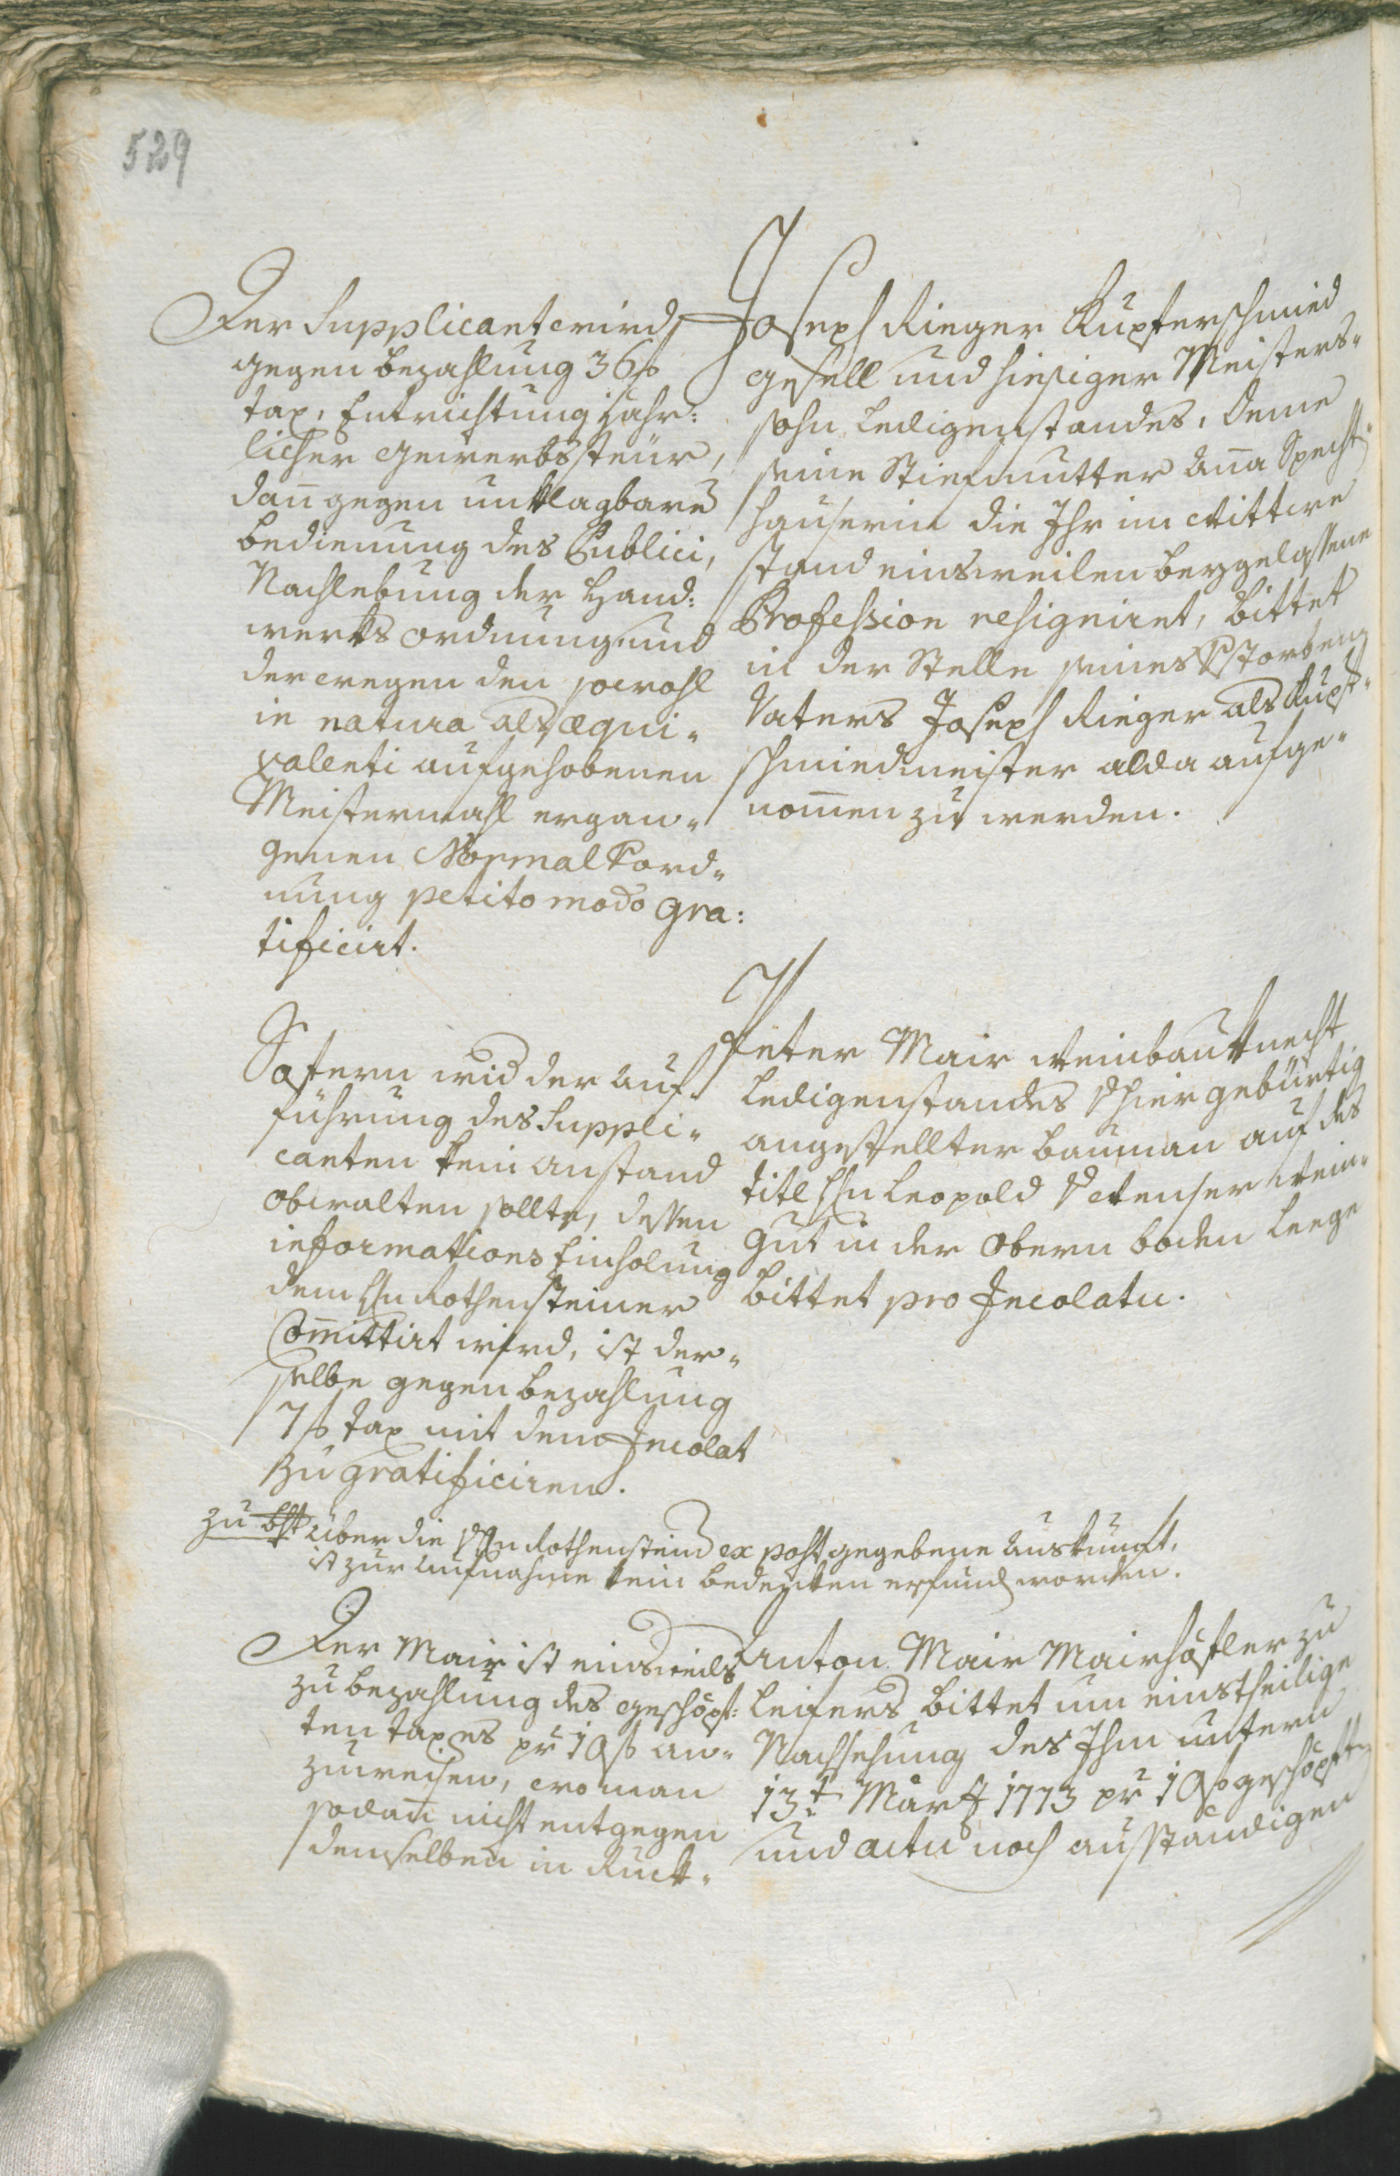 529
Der Supplicant wird
gegen bezahlung 36 f
tax, Entrichtung jähr:
licher gewerbsteür,
dañ gegen unklagbare
bedienung des Publici,
Nachlebung der Hand:
werks ordnung und
der wegen den sowohl
in natura als æqui-
valenti aufgehobenen
Meistermahl ergan-
genen Normal Vord-
nung petito modo gra:
tificirt.
Joseph Rieger Kupferschmied
gesell und hiesiger Meisters-
sohn ledigenstandes, deme
seine Stiefmutter Aña Specht-
hauserin die Ihr im Wittwe
stand einsweilen beygelassene
Profession resignirt, bittet
in der Stelle seines Vstorbeng
Vaters Joseph Rieger als Kupf-
schmiedmeister alda aufge-
nom̃en zu werden.
Sofern wid der Auf
führung des Suppli-
canten kein anstand
obwalten sollte, dessen
informations Einholung
dem Hn Rothensteiner
Com̃ittirt wird, ist der-
selbe gegen bezahlung
7 f tax mit dem Incolat
zu gratificiren.
Peter Mair Weinbauknecht
ledigenstandes Vhier gebürtig
angestellter bauman auf des
titl Hn Leopold
gut in der obern boden leege
bittet pro Incolatu.
zu über die Vhn Rothenstein ex post gegebene Auskunft,
ist zur Aufnahme kein bedenken erfund worden.
Der Mair ist einsweils
zu bezahlung des geschöpf:
ten taxes pr 10 f an-
zuweisen, wo man
sodañ nicht entgegen
demselben in Ruck-
Anton Mair Mairhöfler zu
Leifers bittet um einstheilige
Nachsehung des Ihm untern
13t März 1773 pr 10 f geschöpfte
und actu noch ausständigen